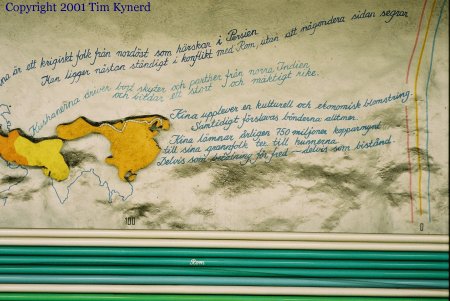 Copyright 2001 Tim Kynerd
na är ett krigiskt folk från nordöst som härskar i Persien
Ken ligger nästan ständigt i konflikt med Rom, utan att någondera sidan segrar
Kushanerna driver bort skyter och parther från norra Indien
och bildar ett stort och mäktigt rike.
Kina upplever en kulturell och ekonomisk blomstring.
Samtidigt förslavas bönderna alltmer.
Kina lämnar årligen 750 miljoner kopparmynt
till sina grannfolk tex till hunnerna.
Delvis som betalning för fred - delvis som bistånd.
100
0
Rom